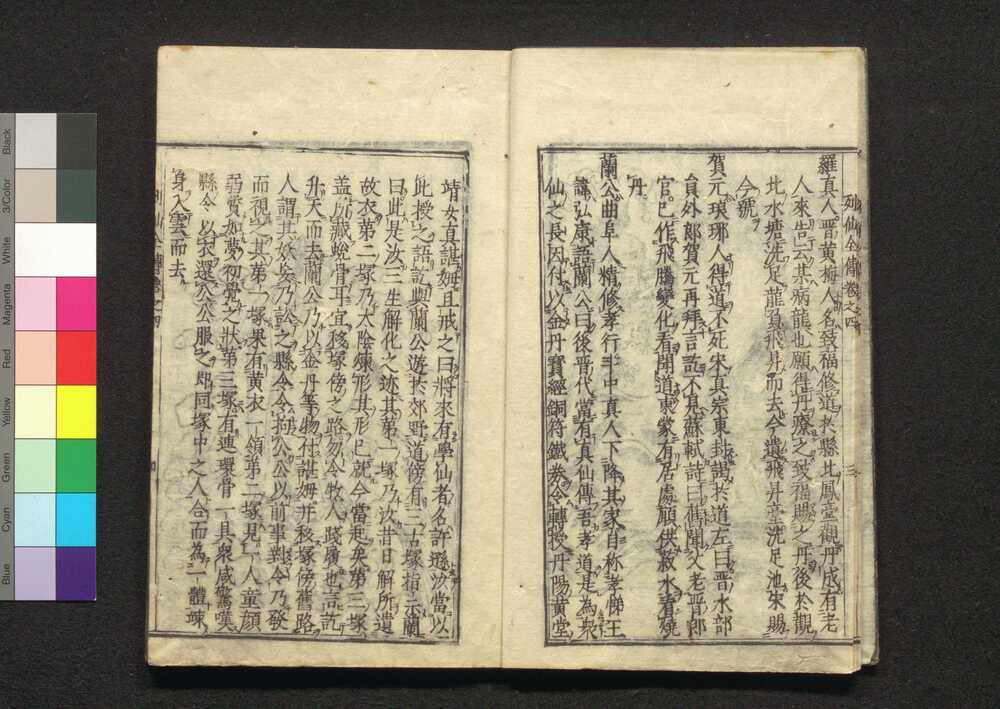 列仙全傳卷之四
羅真人晋黄梅人名致福修道於縣北鳳臺觀丹成有老
人來告云某病龍也願得丹療之致福賜之丹後於觀
北水塘洗足龍負飛昇而去今遺飛昇臺洗足池宋賜
今號
賀元琅琊人得道不死宋真宗東封謁於道左曰晋水部
員外郎賀元再拜言訖不見蘇軾詩曰舊聞父老晋郎
官已作飛騰變化看聞道東蒙有居處願供薪水看燒
丹
蘭公曲阜人精修孝行斗中真人下降其家自称孝悌王
諱弘康語蘭公曰後晋代當有真仙傳吾孝道是為衆
仙之長因付以金丹寶經銅符鐵券令轉授丹陽黄堂
靖女真諶姆且戒之曰將來有學仙者名許遜汝當以
此授之語訖與蘭公遊於郊野道傍有三古塚指示蘭
曰此是汝三生解化之迹其第一塚乃汝昔日解所遺
故衣第二塚乃太陰煉形其形已就今當起矣第三塚
盖所藏蛻骨耳宜移塚傍之路勿令牧人踐履也言訖
升天而去蘭公乃以金丹等物付諶姆并移塚傍舊路
人謂其妖妄乃訟之縣令令拘公公以前事對令乃發
而視之其第一塚果有黄衣一領第二塚見一人童顔
弱質如夢初覺之狀第三塚有連環骨一具衆咸驚嘆
縣令以衣還公公服之即回塚中之人合而為一體竦
身入雲而去
Black
3/Color
White
Magenta
Red
Yellow
Green
Cyan
Blue